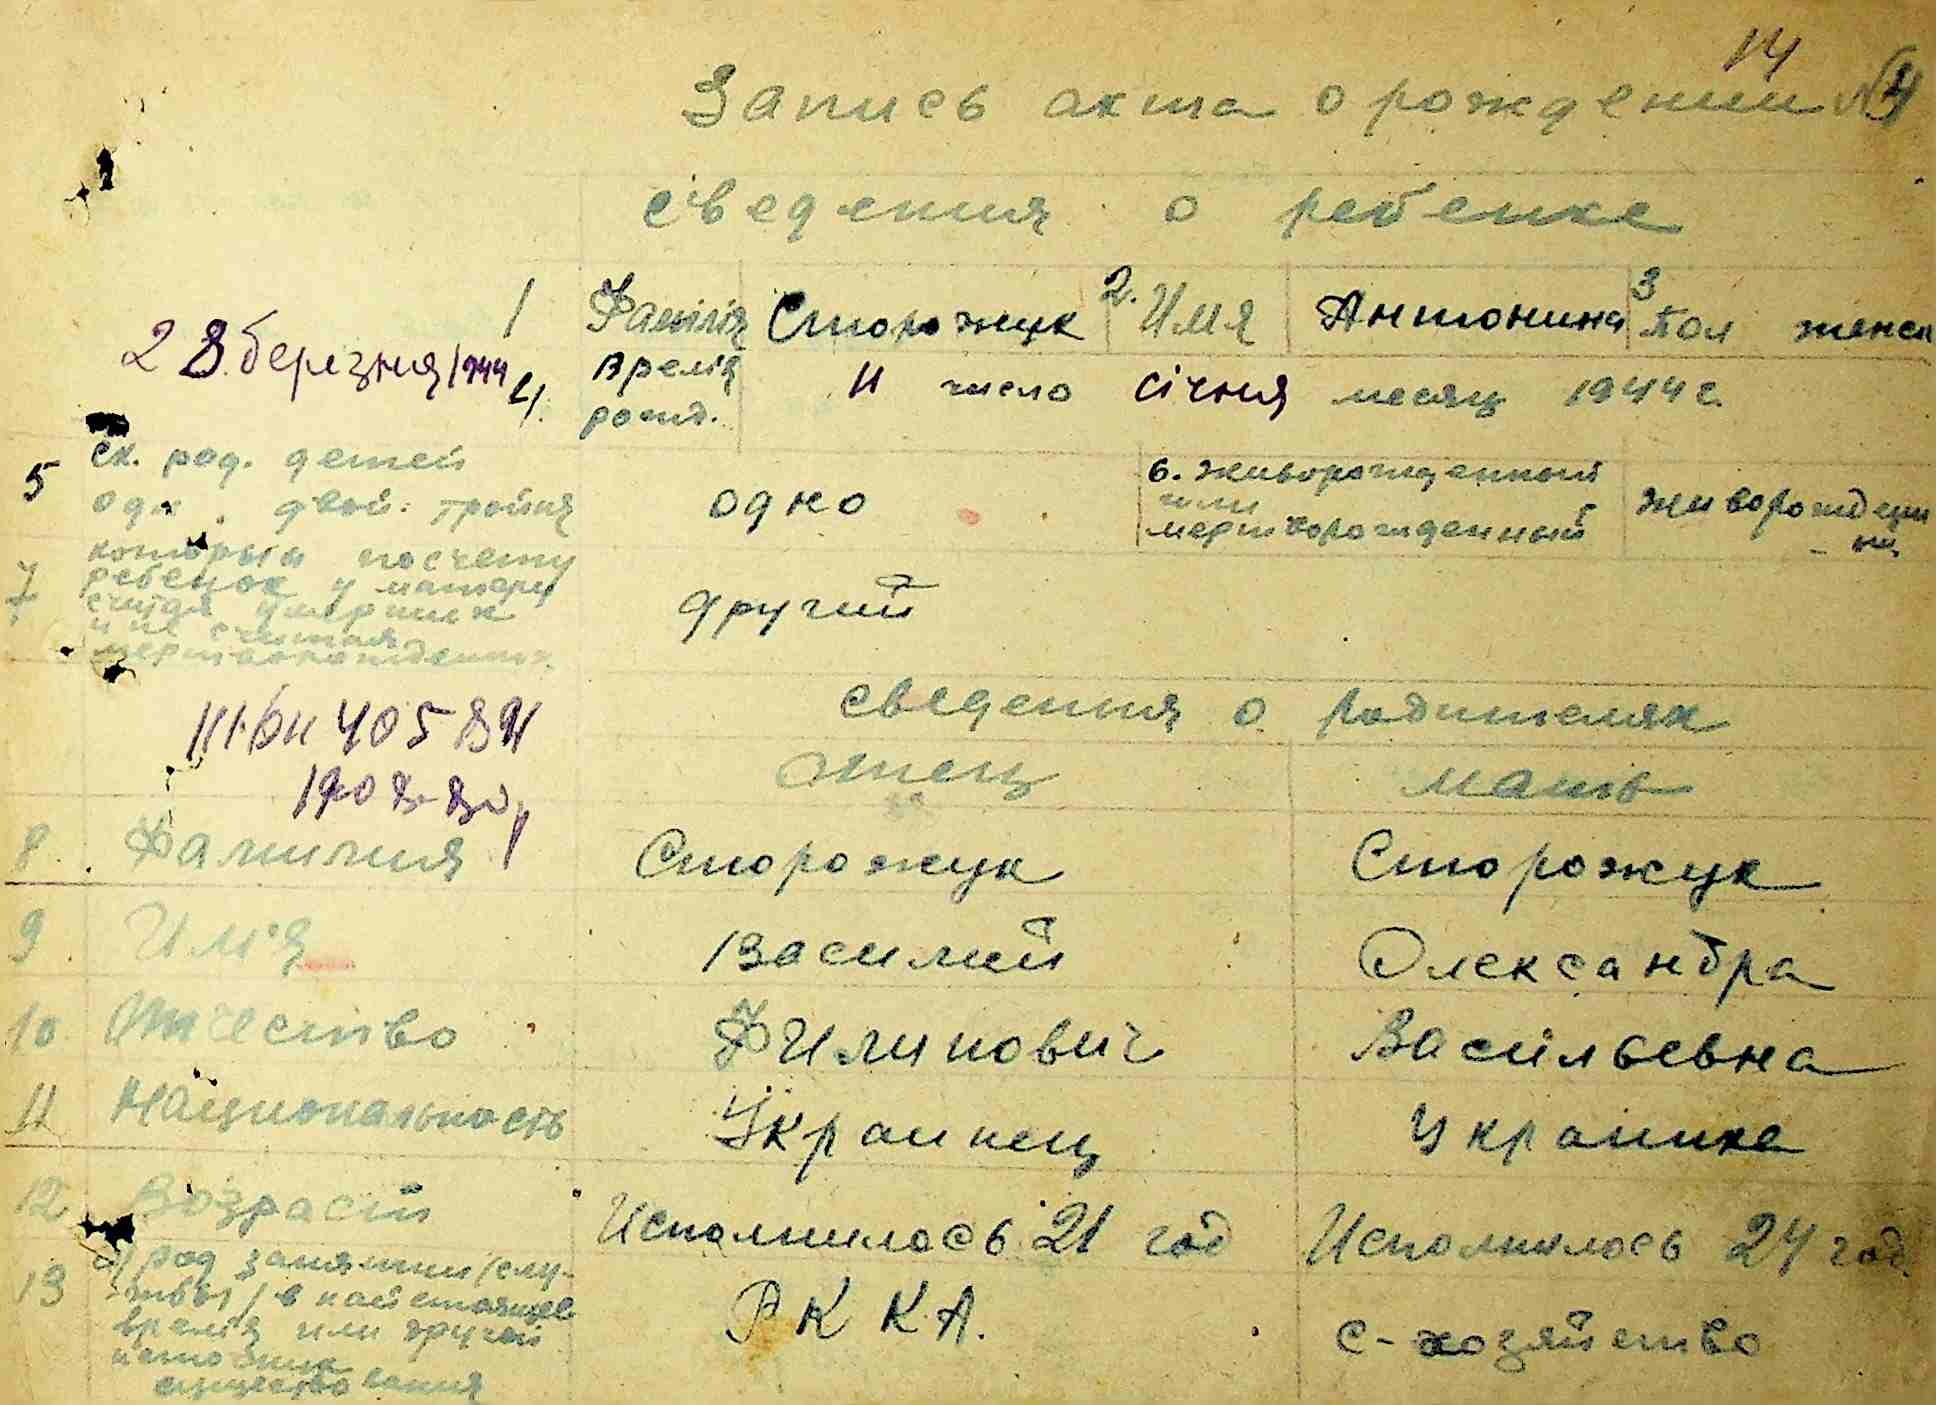 14
Запись акта о рождении №4
Сведения о ребенке
28 березня 1944
1 Фамілія Сторожук 2. Имя Антонина 3 Пол женск
4. Время рожд. 11 число січня месяц 1944 г.
5 ск. род. детей
одн. двой. тройня
одно
6. живорожденный
или
мертворожденный
живорожден
ный
7 который по счету
ребенок у матери
считая умерших
и не считая
мертворожденных
другий
сведения о родителях
405
отец мать
8 Фамилия Сторожук Сторожук
9 Имя Василий Олександра
10 Отчество Филипович Васильевна
11 Национальность Украинец Украинка
12 Возраст Исполнилось 21 год Исполнилось 24 год
13 а) род занятий (слу-
жбы) в найстоящее
время или другой
источник
существования
РККА.
с-хозяйство